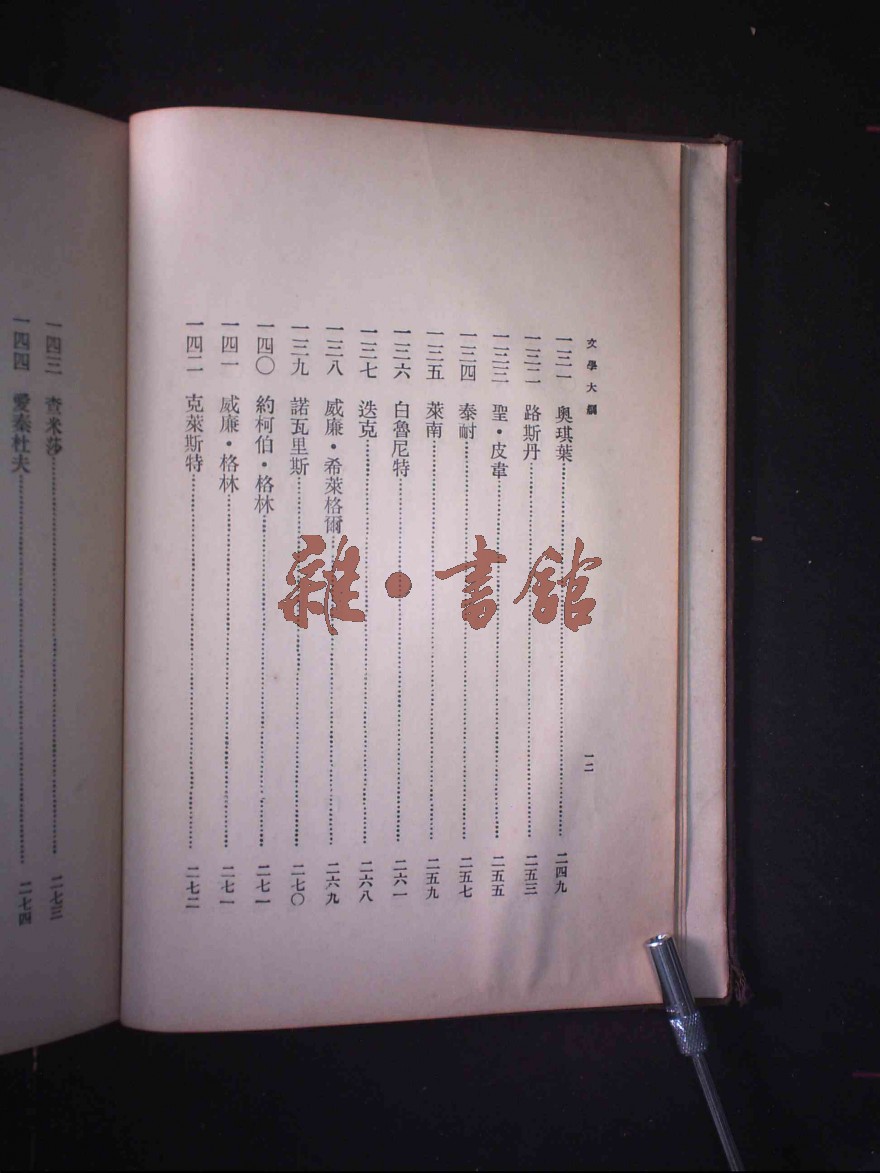 文學大綱
一二
一三一 奧琪葉 二四九
一三二 路斯丹 二五三
一三三 聖・皮韋 二五五
一三四 泰耐 二五七
一三五 萊南 二五九
一三六 白魯尼特 二六一
一三七 迭克 二六八
一三八 威廉・希萊格爾 二六九
一三九 諾瓦里斯 二七〇
一四〇 約柯伯・格林 二七一
一四一 威廉・格林 二七一
一四二 克萊斯特 二七二
一四三 查米莎 二七三
一四四 愛秦杜夫 二七四
雜・書館